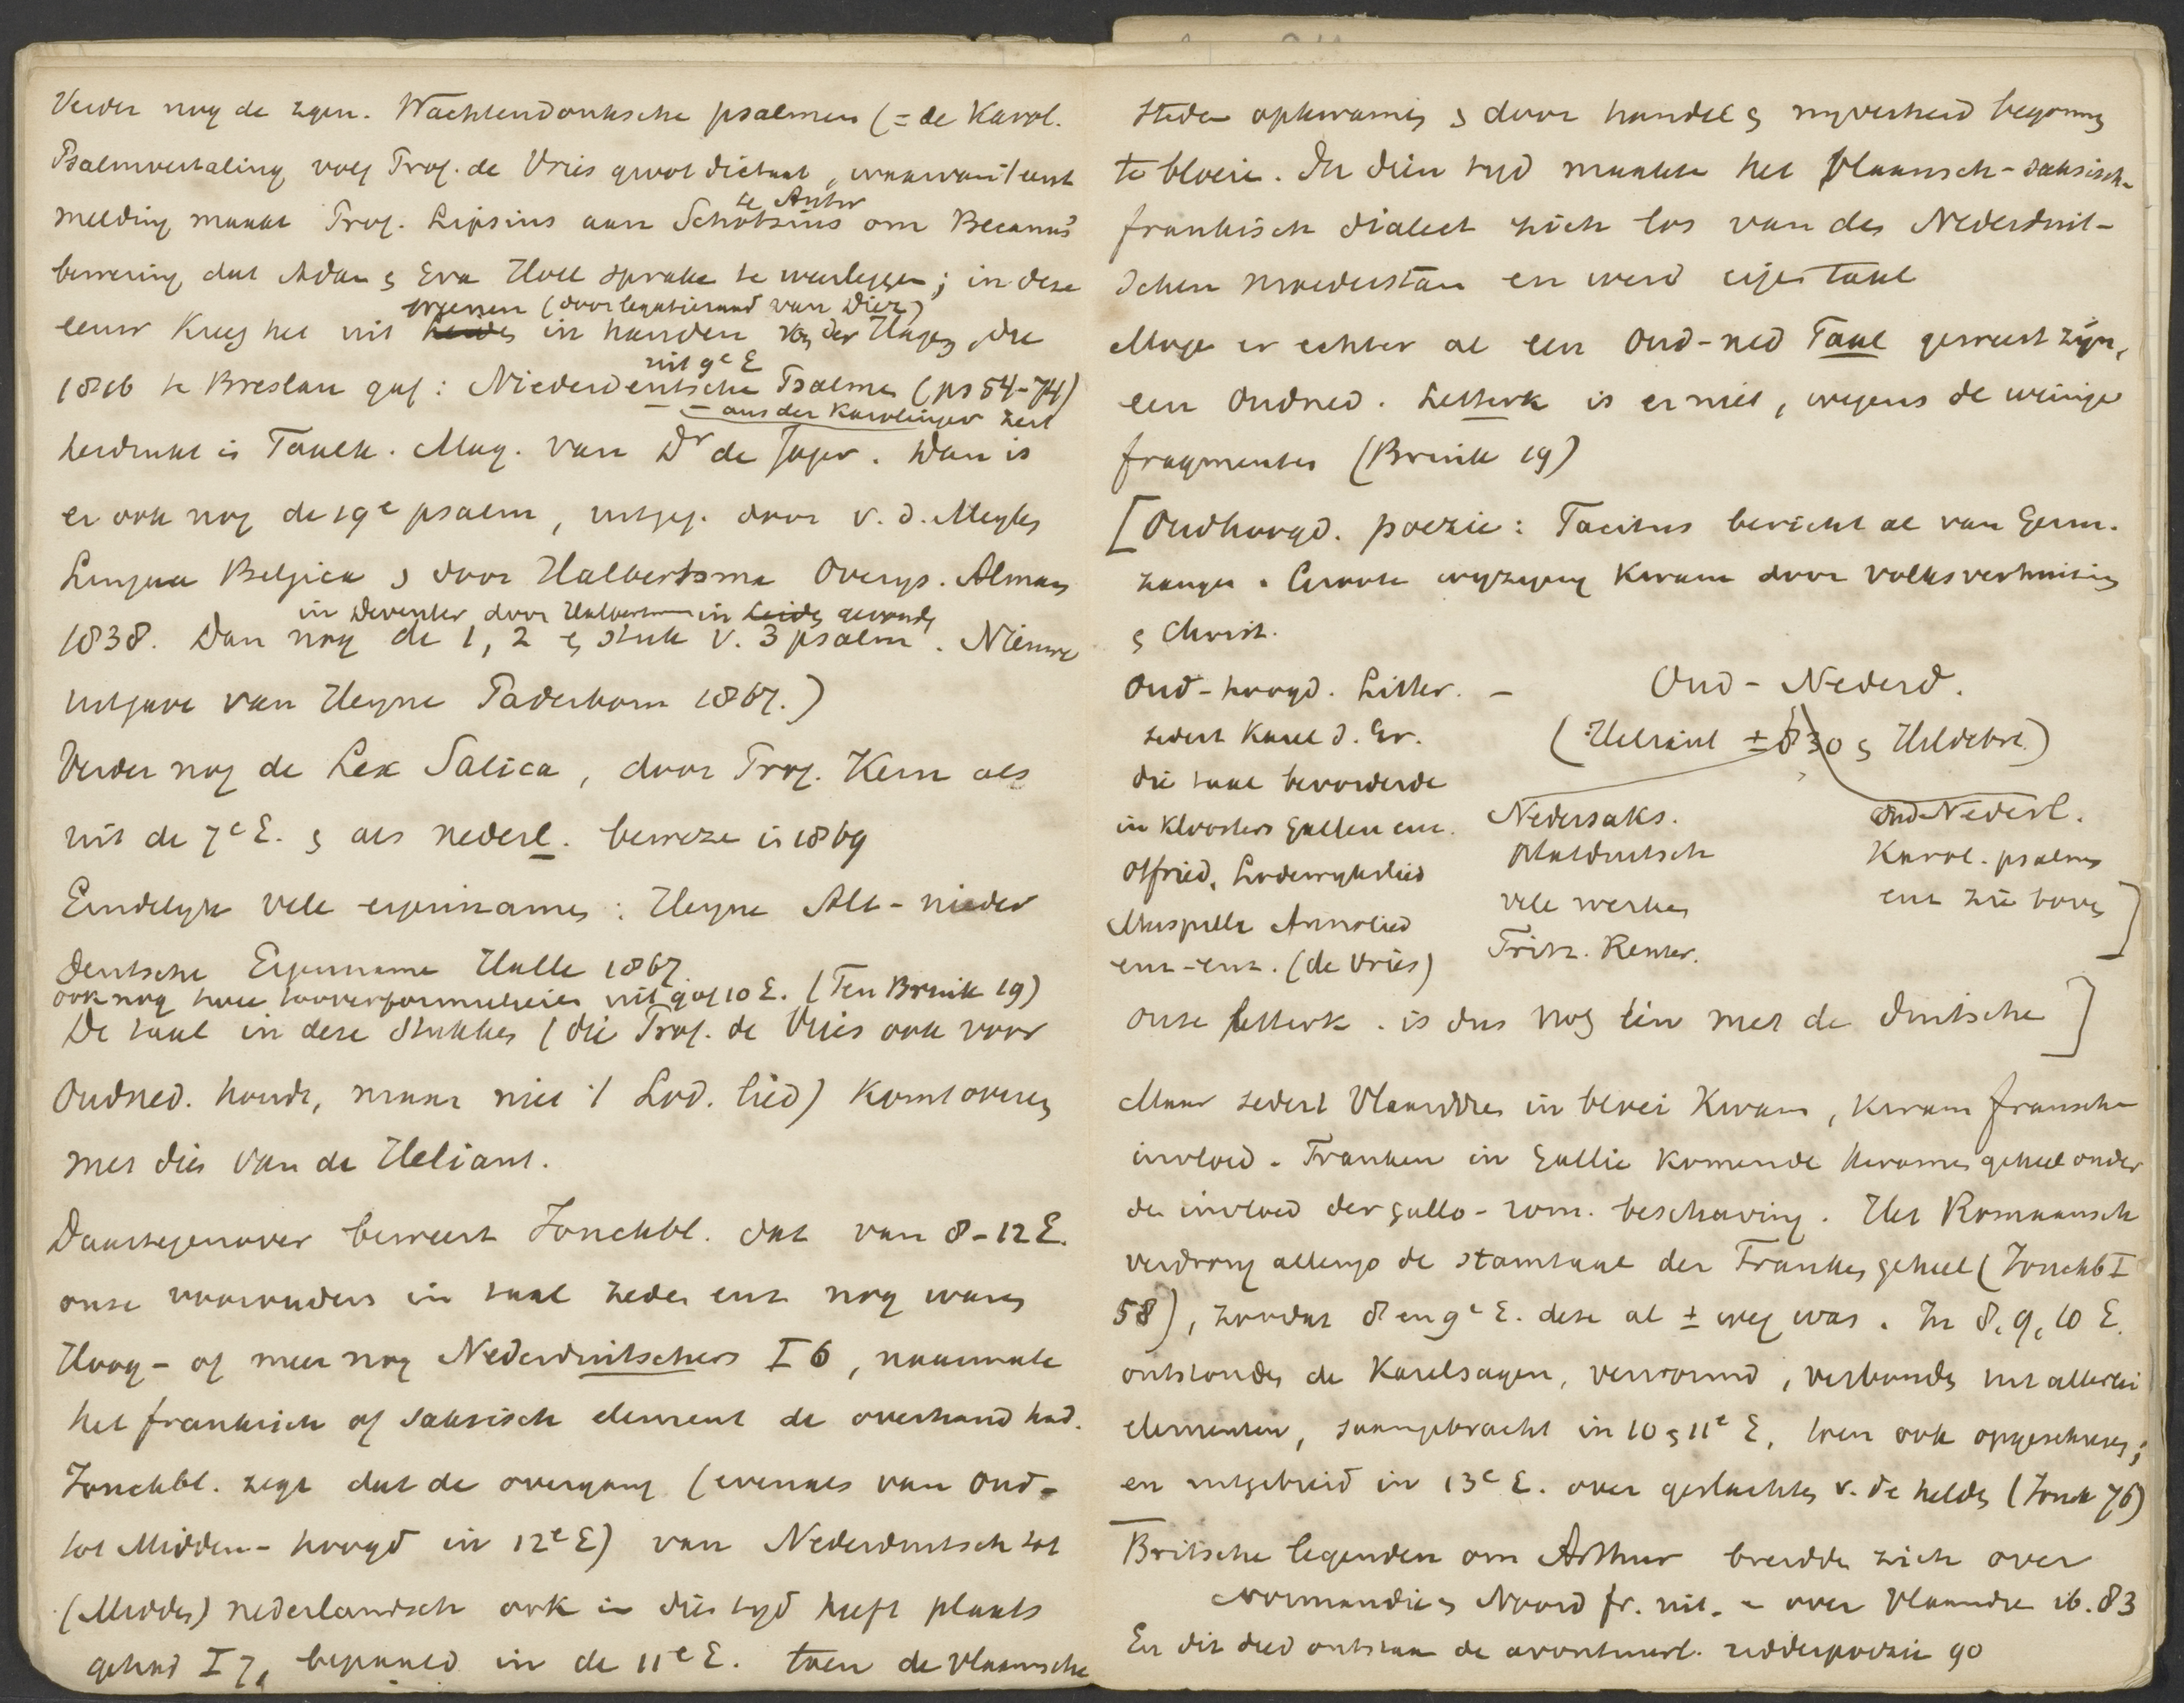 Verder nog de zgen. Wachtendonksche psalmen (= de Karol.
Psalmvertaling volg Prof. de Vries groot dictaat, waarvan 't eerst
te Antw
melding maakt Prof. Lipsius aan Schotzius om Becanus'
bewering dat Adam & Eva Holl spraken te weerleggen; in deze
Weenen (door legatieraad van Diez)
eeuw kreeg het uit in handen v. der Hagen, die
uit 9e E
1816 te Breslau gaf: Niederdeutsche Psalmen (ps 54-74)
aus der Karolinger Zeit
herdrukt in Taalk. Mag. van Dr de Jager. Dan is
er ook nog de 19e psalm, uitgeg. door v. d. Meylen
Lingua Belgica & door Halbertsma Overijs. Alman
in Deventer door Halbertsma in Leide gevonden
1838. Dan nog de 1, 2 & stuk v. 3 psalm. Nieuwe
uitgave van Heyne Paderborn 1867.)
Verder nog de Lex Salica, door Prof. Kern als
uit de 7e E. & als nederl. bewezen in 1869
Eindelyk vele eigennamen: Heyne Alt-nieder
deutsche Eigenname Halle 1867
ook nog twee tooverformulieren uit 9 of 10 E. (Ten Brink 19)
De taal in deze stukken (die Prof. de Vries ook voor
Oudned. houdt, maar niet 't Lod. lied) komt overeen
met die van de Heliant.
Daartegenover beweert Jonckbl. dat van 8-12 E.
onze voorouders in taal zeden enz nog waren
Hoog- of meer nog Nederduitschers I 6, naarmate
het frankisch of saksisch element de overhand had.
Jonckbl. zegt dat de overgang (evenals van Oud-
tot Midden-hoogd in 12e E) van Nederduitsch tot
(Midden) nederlandsch ook in dien tyd heeft plaats
gehad I 7, bepaald in de 11e E. toen de vlaamsche
steden opkwamen & door handel & nyverheid begonnen
te bloeien. In dien tyd maakte het Vlaamsch-saksisch-
frankisch dialect zich los van den Nederduit-
schen moederstam en werd eigen taal
Moge er echter al een Oud-ned Taal geweest zijn,
een Oudned. Letterk is er niet, wegens de weinige
fragmenten (Brink 19)
[Oudhoogd. poezie: Tacitus bericht al van Germ.
zangen. Groote wyziging kwam door volksverhuizing
& Christ.
Oud-hoogd. Litter. — Oud-Nederd.
sedert Karel d. Gr. (Heliant ± 830 & Hildebr.)
die taal bevorderde
in Kloosters Gallen enz. Nedersaks. Oud Nederl.
Otfried, Lodewykslied Platduitsch Karol. psalmen
Muspilli Annolied vele werken enz zie boven]
enz-enz. (de Vries) Fritz. Reuter.
Onze letterk. is dus nog één met de duitsche]
Maar sedert Vlaandren in bloei kwam, kwam fransche
invloed. Franken in Gallie komende kwamen geheel onder
de invloed der gallo-rom. beschaving. Het Romaansch
verdrong allengs de stamtaal der Franken geheel (Jonckb I
58), zoodat 8 en 9e E. deze al ± weg was. In 8, 9, 10 E.
ontstonden de Karelsagen, verward, verbonden met allerlei
elementen, saamgebracht in 10 & 11e E, toen ook opgeschreven;
en uitgebreid in 13e E. over geslachten v. de helden (Jonck 76)
Britsche legenden om Arthur breidden zich over
Normandie & Noord fr. uit. — over Vlaandre ib. 83
En dit deed ontstaan de avontuurl. ridderpoëzie 90